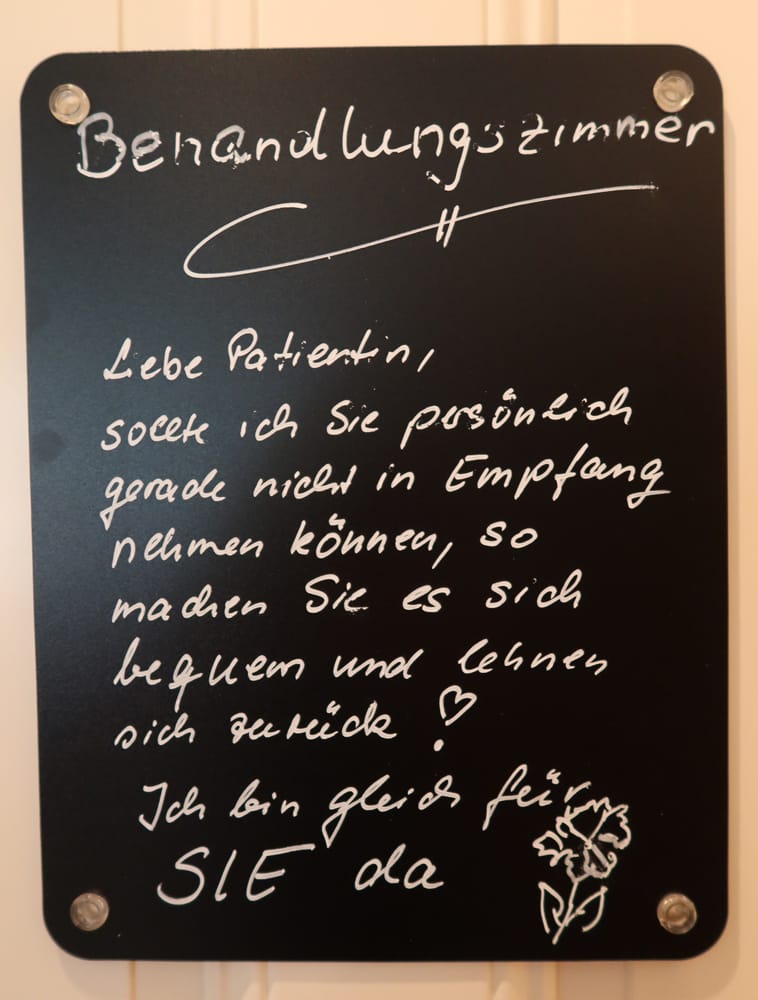 Behandlungszimmer
Liebe Patientin,
sollte ich Sie persönlich
gerade nicht in Empfang
nehmen können, so
machen Sie es sich
bequem und lehnen
sich zurück!
Ich bin gleich für
SIE da